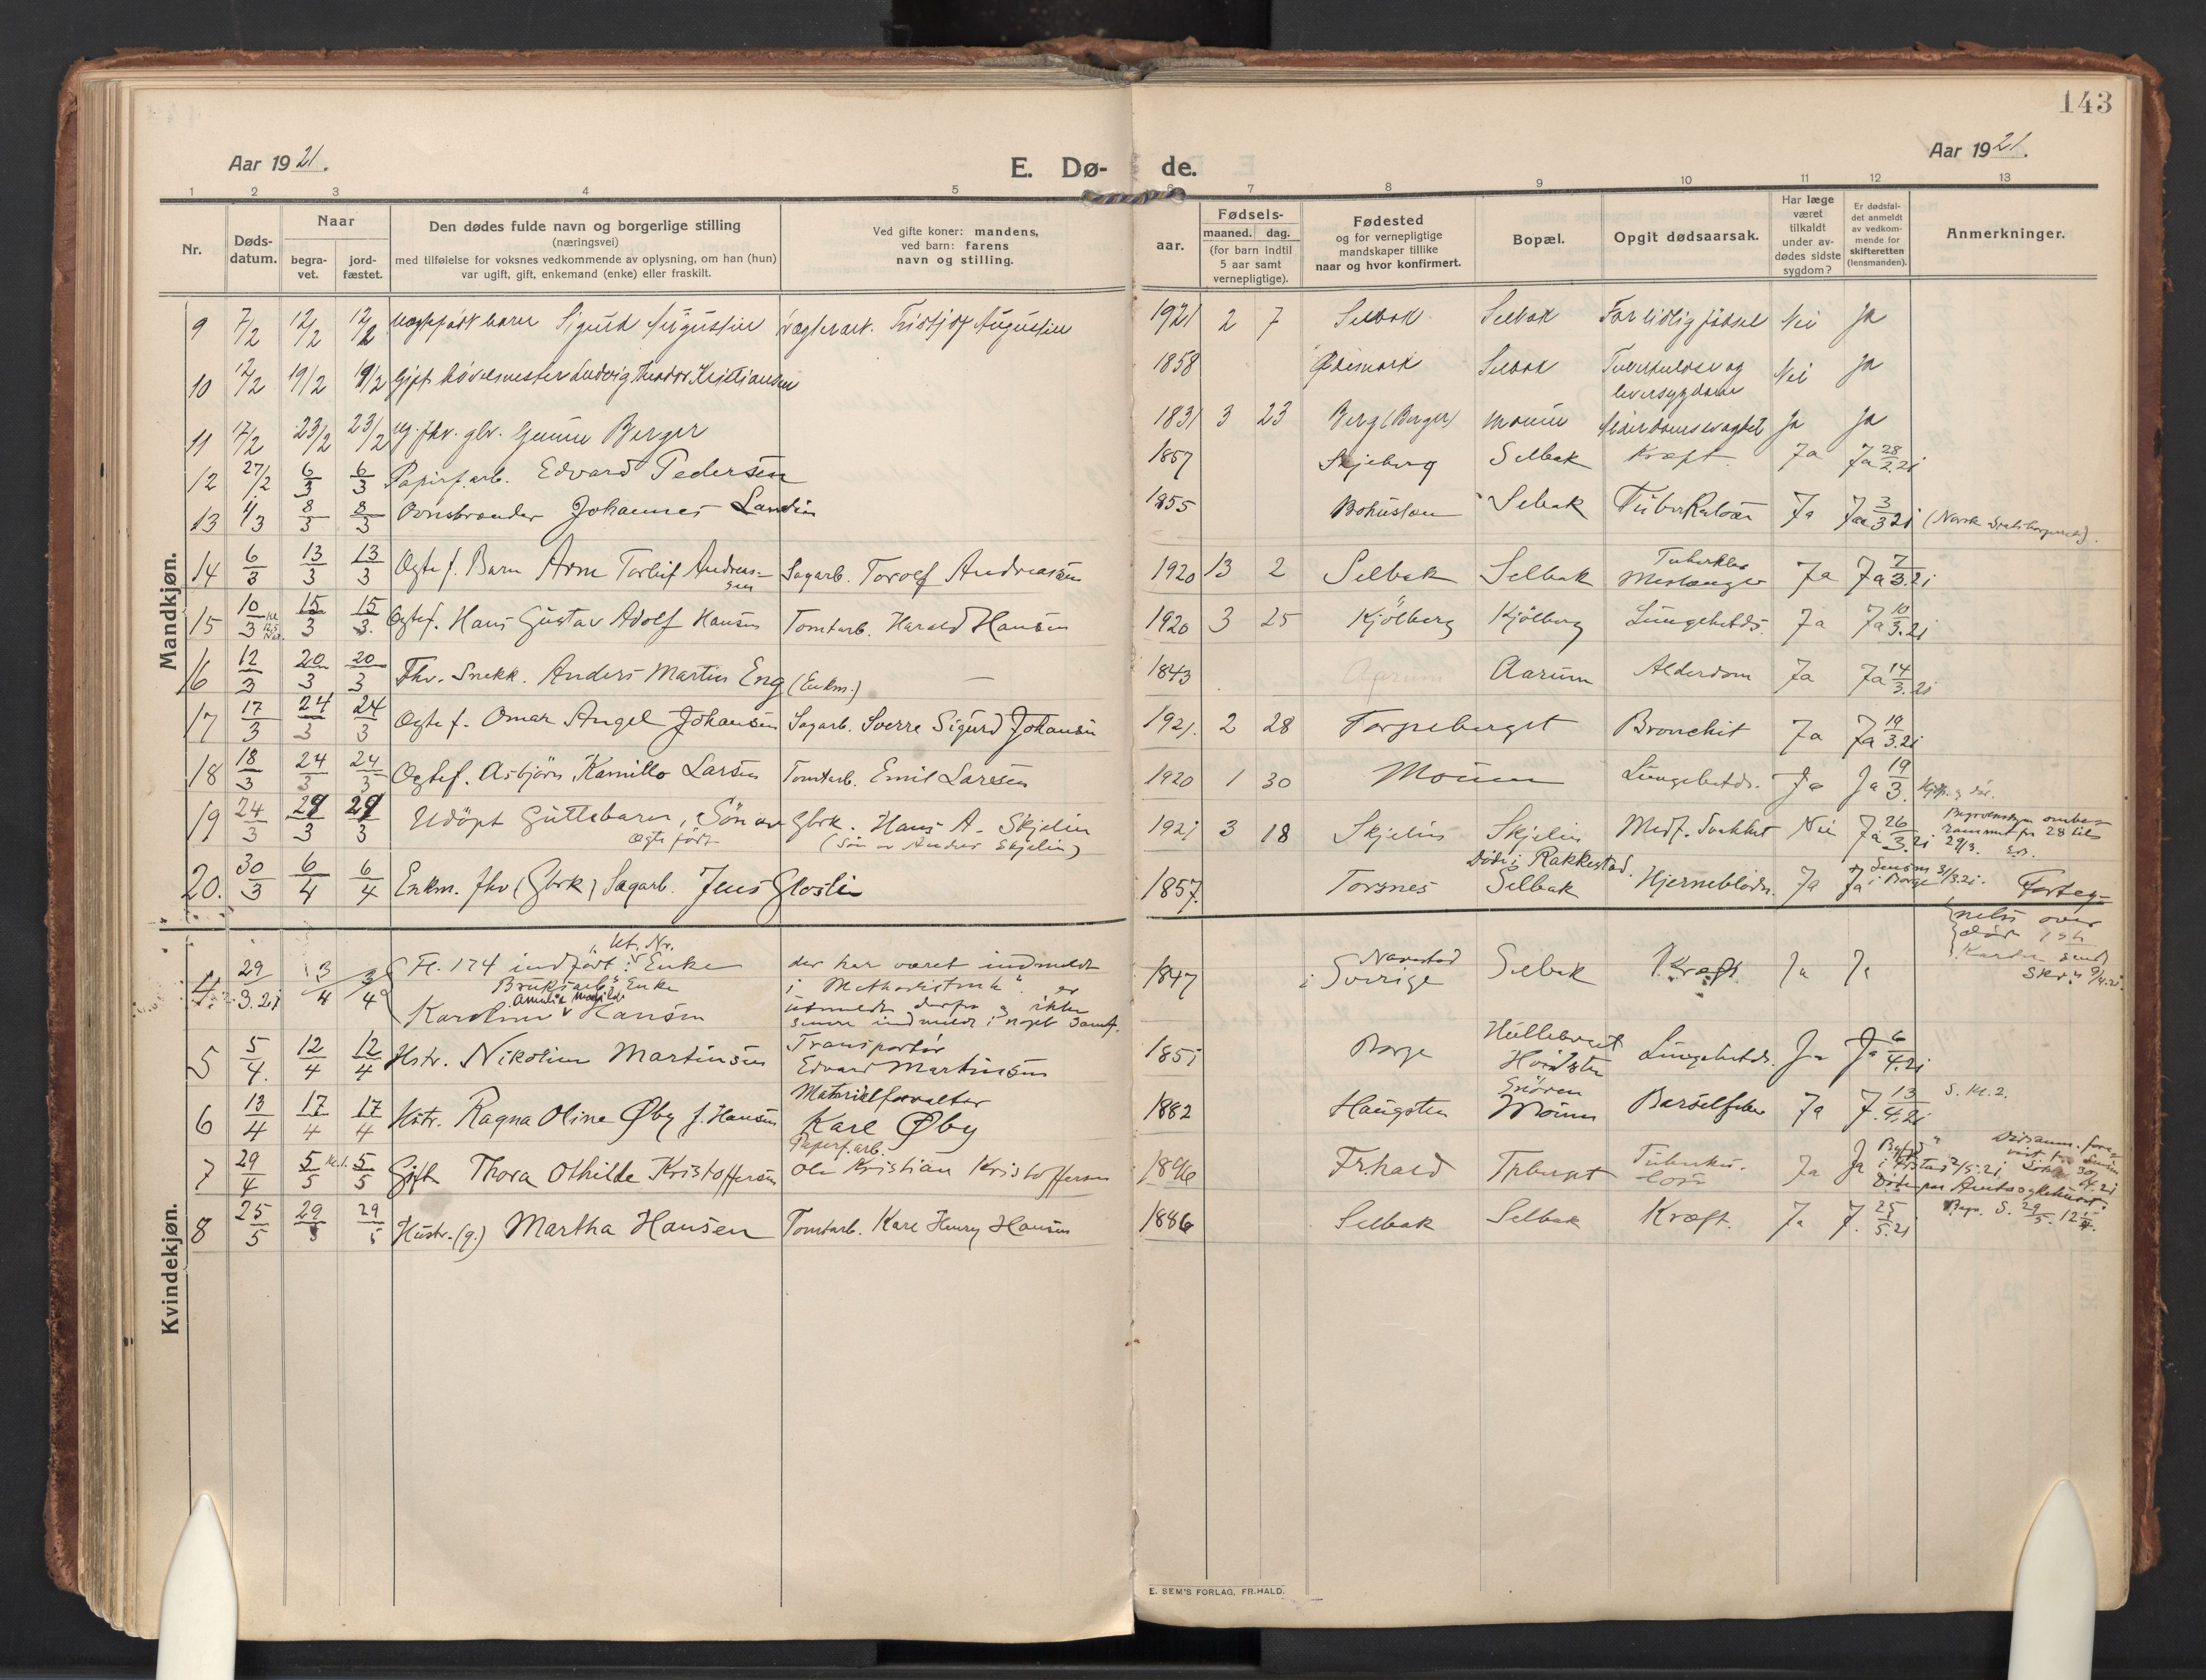 143
Aar 1921.
E. Dø-de.
Aar 1921.
1 2 3 4 5 6 7 8 9 10 11 12 13
Nr.
Døds-
datum.
Naar
begra-
vet.
jord-
fæstet.
Den dødes fulde navn og borgerlige stilling
(næringsvei)
med tilføielse for voksnes vedkommende av oplysning, om han (hun)
var ugift, gift, enkemand (enke) eller fraskilt.
Ved gifte koner: mandens,
ved barn: farens
navn og stilling.
aar.
Fødsels-
maaned. dag.
(for barn indtil
5 aar samt
vernepligtige).
Fødested
og for vernepligtige
mandskaper tillike
naar og hvor konfirmert.
Bopæl.
Opgit dødsaarsak.
Har læge
været
tilkaldt
under av-
dødes sidste
sygdom?
Er dødsfal-
det anmeldt
av vedkom-
mende for
skifteretten
(lensmanden).
Anmerkninger.
Mandkjøn.
9 7/2 12/2 12/2 barn Sigurd Augustin Augustin 1921 2 7 Selbak Selbak For tidlig fødsel Nei Ja
10 12/2 19/2 19/2 Gift høvlemester Ludvig Theodor Kristiansen 1858 Ødemark Selbak Tuberkulose og
leversygdom Nei Ja
11 17/2 23/2 23/2 ug. fhv. gbr. Berger 1831 3 23 Berg (Berger) Moum Ja Ja
12 27/2 6/3 6/3 Papirf.arb. Edvard Pedersen 1857 Skjeberg Selbak Kræft Ja Ja 28/2.21
13 1/3 8/3 8/3 Ovnsbrænder Johannes Landin 1855 Bohuslen Selbak Tuberkulose Ja Ja 3/3 21 (Norsk Statsborgerret).
14 6/3 13/3 13/3 Ægtef. Barn Arne Torleif Andreas-
sen Sagarb. Torolf Andreassen 1920 13 2 Selbak Selbak Tuberkler
Ja Ja 7/3.21
15 10/3 15/3 15/3. Ægtef. Hans Gustav Adolf Hansen Tomtarb. Harald Hansen 1920 3 25 Kjølberg Kjølberg Lungebetds. Ja Ja 10/3.21
16 12/3 20/3 20/3 Fhv. Snekk. Anders Martin Eng (Enkm.) — 1843 Aarum Aarum Alderdom Ja Ja 14/3.21
17 17/3 24/3 24/3 Ægtef. Omar Angel Johansen Sagarb. Sverre Sigurd Johansen 1921. 2 28 Torpeberget Bronchit Ja Ja 19/3.21
18 18/3 24/3 24/3 Ægtef. Asbjørn Kamillo Larsen Tomtarb. Emil Larssen 1920 1 30 Moum Lungebetds. Ja Ja 19/3.
19 24/3 29/3 29/3 Udøpt Guttebarn, Søn av Gbrk. Hans A. Skjelin 1921 3 18 Skjelin Skjelin Medf. Svakhet Nei Ja 26/3.21
Ægtefødt (Søn av Anders Skjelin)
29/3.
20. 30/3 6/4 6/4 Enkm. fhv (Gbrk) Sagarb. Jens Gloslie 1857. Torsnes Død i Rakkestad.
Selbak Hjerneblødn. Ja Ja i Borge 31/3.21. Forteg-
nelse over
Kvindekjøn.
4. 29/3.21 3/4 3/4 Fl. 174 indført : Enke
Bruksarb. Enke
Amalie Mathilde
Karoline Hansen
der har været indmeldt
i Methodistmk. er
utmeldt derfra og ikke
senere indmeldt i noget Samf.
1847 Navestad
i Sverige Selbak Kræft Ja Ja
5 5/4. 12/4 12/4 Hstr. Nikoline Martinsen Transportør
Edvard Martinsen 1851 Borge Lungebetds. Ja Ja 6/4.21
6 13/4 17/4 17/4 Hstr. Ragna Oline Øby f. Hansen Materialforvalter
Kare Øby 1882 Haugsten Moum Barselfeber Ja J. 13/4.21 S. Kl. 2.
7 29/4 5/5 5/5 Gift Thora Othilde Kristoffersen Papirf.arb.
Ole Kristian Kristoffersen 1896 Fr.hald Tpberget Tuberku-
lose Ja Ja
8 25/5 29/5 29/5 Hustr. (g.) Martha Hansen Tomtarb. Kare Henry Hansen 1886 Selbak Selbak Kræft. Ja J. 25/5.21 29/5.
E. SEM'S FORLAG, FR.HALD.